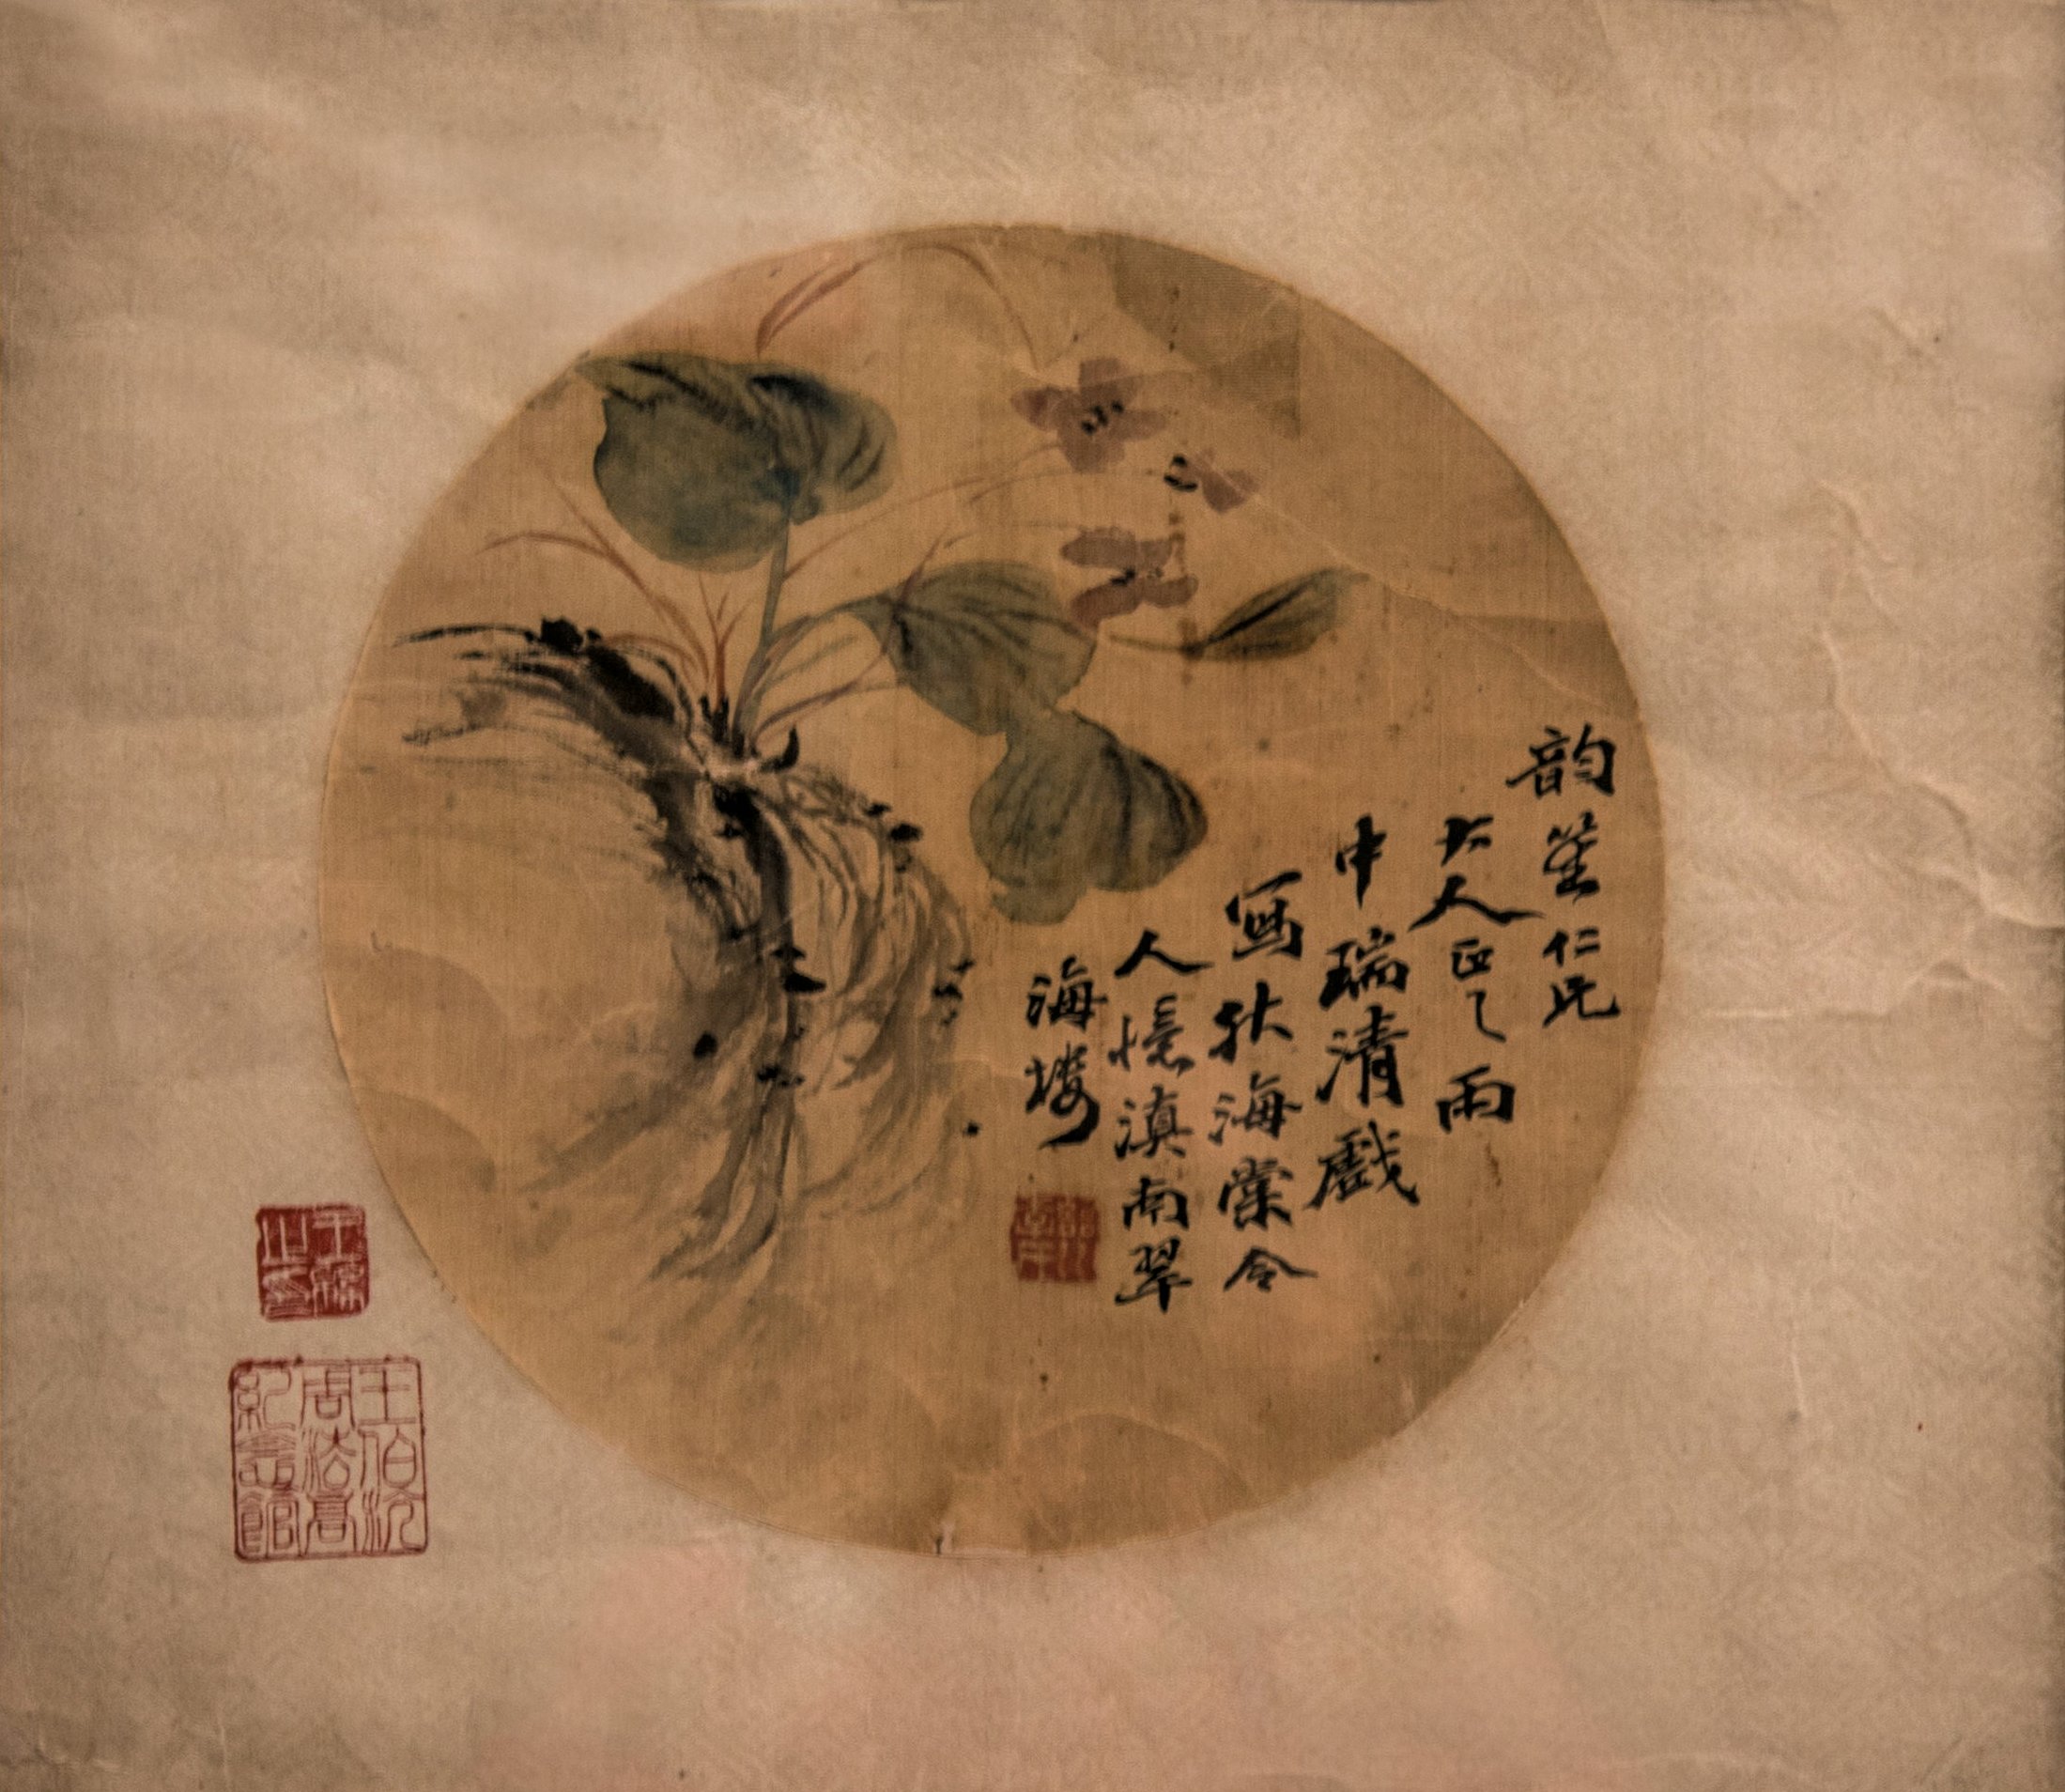 韵笙仁兄
大人正之 雨
中瑞清戲
寫秋海棠令
人憶滇南翠
海樓
王伯沆
周法高
紀念館